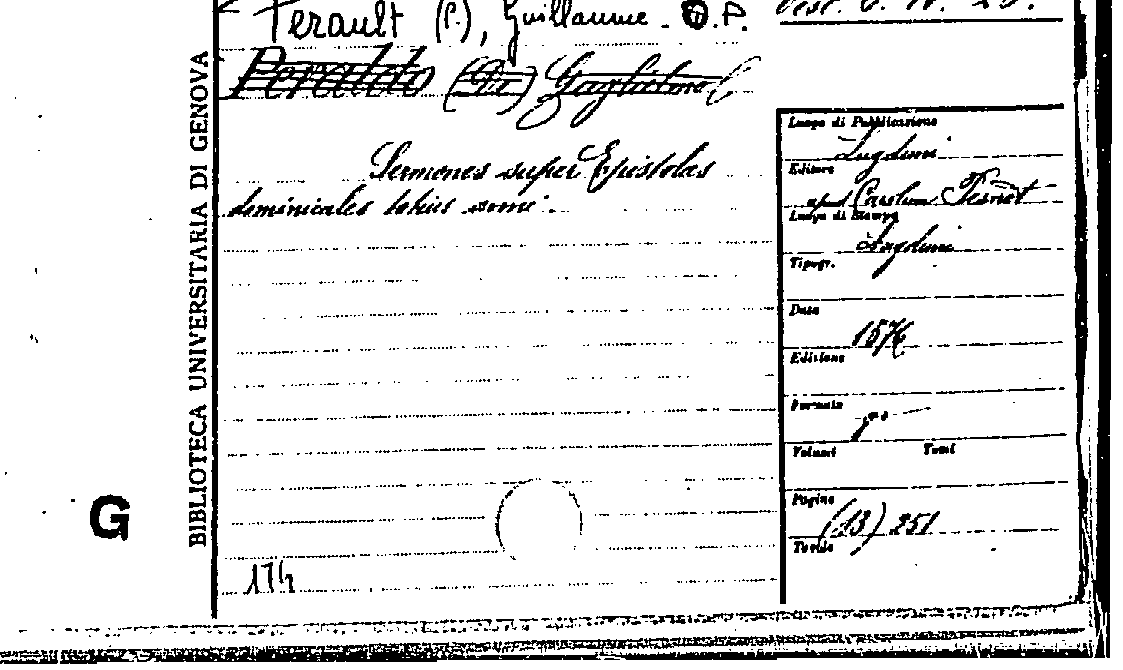 Perault (P.), Guillaume. O.P.
Peraldo (Da) Guglielmo
Sermones super Epistolas
dominicales totius anni.
174
BIBLIOTECA UNIVERSITARIA DI GENOVA
G
Luogo di Pubblicazione
Lugduni
Editore
apud Carolum Pesnot
Luogo di Stampa
Lugduni
Tipogr.
Data
1576
Edizione
Formato
8°
Volumi Tomi
Pagine
(13) 251
Tavole